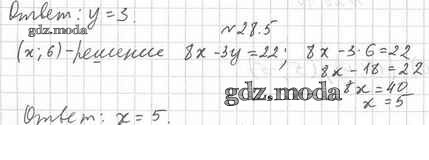 Ответ: y = 3.
gdz.moda
№28.5
(x; 6) - решение 8x - 3y = 22; 8x - 3·6 = 22
8x - 18 = 22
gdz.moda 8x = 40
x = 5
Ответ: x = 5.